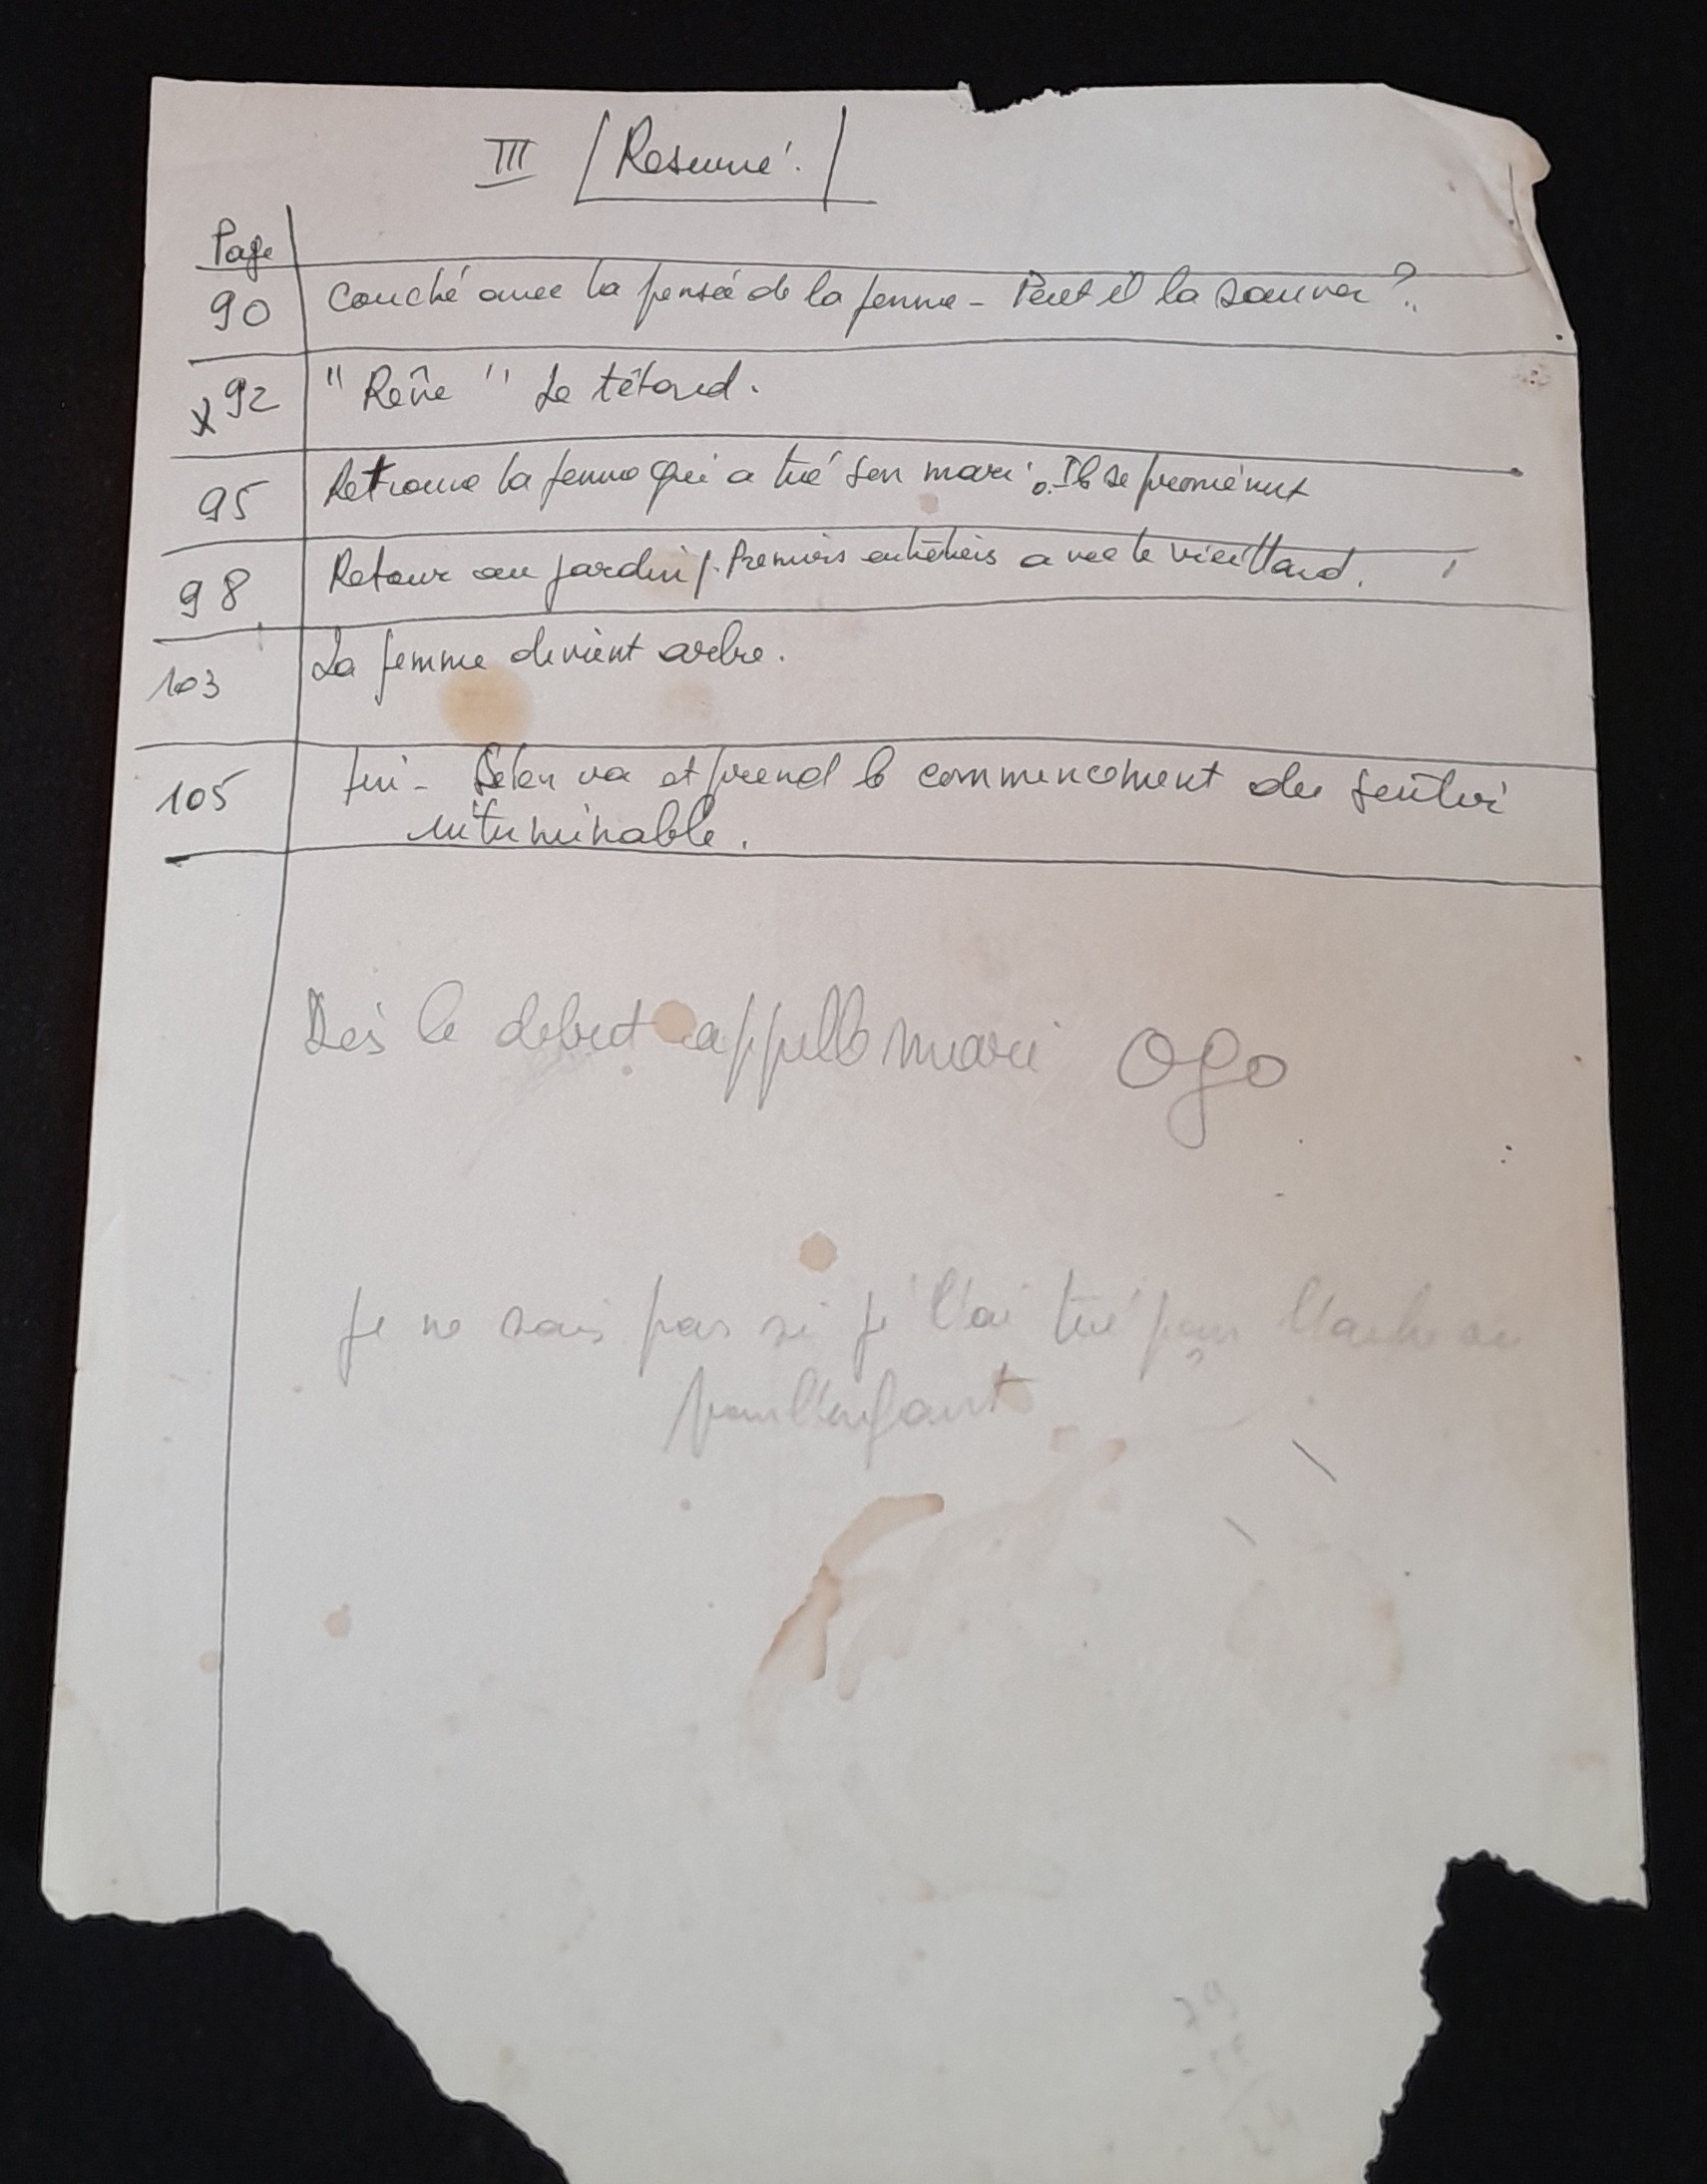 III Resumé.
Page
90 Couché avec la pensée de la femme - Peut il la sauver ?
x 92 "Rêve" Le têtard.
95 Retrouve la femme qui a tué son mari. Ils se promènent
98 Retour au jardin. Premiers entretiens avec le vieillard.
103 La femme devient arbre.
105 s'en va et prend le commencement du sentier
interminable.
Dès le debut appelle mari Ogo
Je ne sais pas si je l'ai tué pour l'arbre ou
pour l'enfant